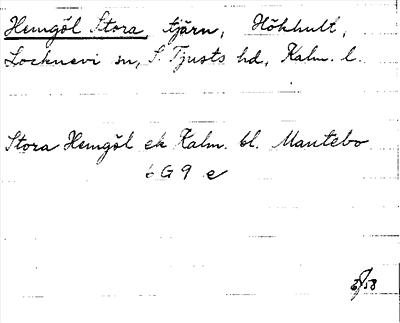 Hemgöl Stora, tjärn, Hökhult,
Locknevi sn, S. Tjusts hd, Kalm. l.
Stora Hemgöl ek Kalm. bl. Mantebo
6 G 9 e